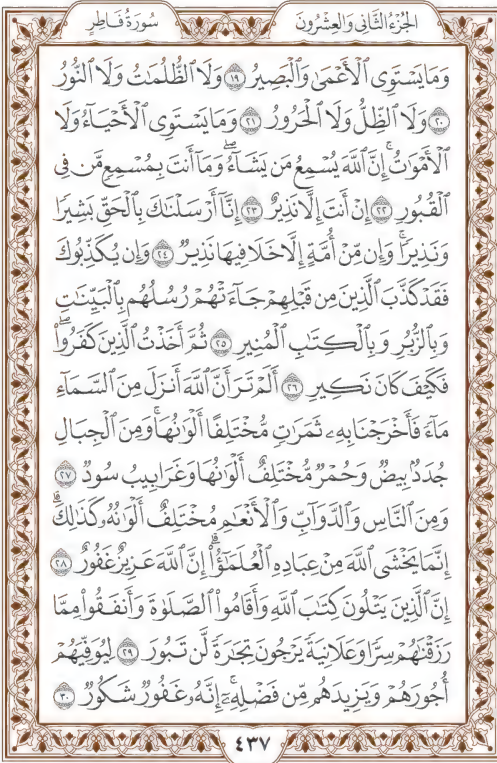 الجُزْءُ الثَّانِي وَالعِشْرُونَ سُورَةُ فَاطِرٍ
وَمَا يَسْتَوِى ٱلْأَعْمَىٰ وَٱلْبَصِيرُ ۝١٩ وَلَا ٱلظُّلُمَٰتُ وَلَا ٱلنُّورُ
۝٢٠ وَلَا ٱلظِّلُّ وَلَا ٱلْحَرُورُ ۝٢١ وَمَا يَسْتَوِى ٱلْأَحْيَآءُ وَلَا
ٱلْأَمْوَٰتُ ۚ إِنَّ ٱللَّهَ يُسْمِعُ مَن يَشَآءُ ۖ وَمَآ أَنتَ بِمُسْمِعٍ مَّن فِى
ٱلْقُبُورِ ۝٢٢ إِنْ أَنتَ إِلَّا نَذِيرٌ ۝٢٣ إِنَّآ أَرْسَلْنَٰكَ بِٱلْحَقِّ بَشِيرًا
وَنَذِيرًا ۚ وَإِن مِّنْ أُمَّةٍ إِلَّا خَلَا فِيهَا نَذِيرٌ ۝٢٤ وَإِن يُكَذِّبُوكَ
فَقَدْ كَذَّبَ ٱلَّذِينَ مِن قَبْلِهِمْ جَآءَتْهُمْ رُسُلُهُم بِٱلْبَيِّنَٰتِ
وَبِٱلزُّبُرِ وَبِٱلْكِتَٰبِ ٱلْمُنِيرِ ۝٢٥ ثُمَّ أَخَذْتُ ٱلَّذِينَ كَفَرُوا۟ ۖ
فَكَيْفَ كَانَ نَكِيرِ ۝٢٦ أَلَمْ تَرَ أَنَّ ٱللَّهَ أَنزَلَ مِنَ ٱلسَّمَآءِ
مَآءً فَأَخْرَجْنَا بِهِۦ ثَمَرَٰتٍ مُّخْتَلِفًا أَلْوَٰنُهَا ۚ وَمِنَ ٱلْجِبَالِ
جُدَدٌۢ بِيضٌ وَحُمْرٌ مُّخْتَلِفٌ أَلْوَٰنُهَا وَغَرَابِيبُ سُودٌ ۝٢٧
وَمِنَ ٱلنَّاسِ وَٱلدَّوَآبِّ وَٱلْأَنْعَٰمِ مُخْتَلِفٌ أَلْوَٰنُهُۥ كَذَٰلِكَ ۗ
إِنَّمَا يَخْشَى ٱللَّهَ مِنْ عِبَادِهِ ٱلْعُلَمَٰٓؤُا۟ ۗ إِنَّ ٱللَّهَ عَزِيزٌ غَفُورٌ ۝٢٨
إِنَّ ٱلَّذِينَ يَتْلُونَ كِتَٰبَ ٱللَّهِ وَأَقَامُوا۟ ٱلصَّلَوٰةَ وَأَنفَقُوا۟ مِمَّا
رَزَقْنَٰهُمْ سِرًّا وَعَلَانِيَةً يَرْجُونَ تِجَٰرَةً لَّن تَبُورَ ۝٢٩ لِيُوَفِّيَهُمْ
أُجُورَهُمْ وَيَزِيدَهُم مِّن فَضْلِهِۦٓ ۚ إِنَّهُۥ غَفُورٌ شَكُورٌ ۝٣٠
٤٣٧